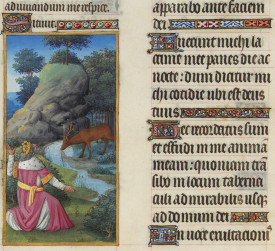 ad iuuandum me respice.
apparabo ante faciem
dei
Fuerunt michi la
crime mee panes die ac
nocte: dum dicitur mi
chi cotidie ubi est deus
tuus
Hec recordatus sum
et effudi in me animā
meam: quoniam trā
sibo in locum taberna
culi admirabilis usq;
ad domum dei
In uoce exultacionis